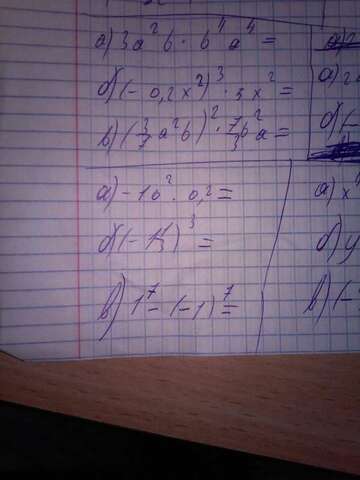 а) 3a²b · b⁴a⁴ =
б) (- 0,2x²)³ · 5x² =
в) (3/7 a²b)² · 7/3 b²a =
а) - 10² · 0,2 =
б) (- )³ =
в) 1⁷ - (-1)⁷ =
а) x
б) y
в) (-